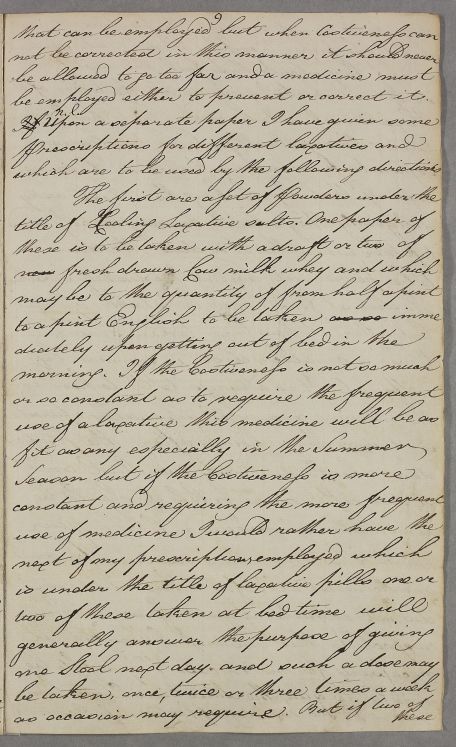 9
that can be employed but when Costiveness can
not be corrected in this manner it should never
be allowed to go too far and a medicine must
be employed either to prevent or correct it.
Upon a separate paper I have given some
Prescriptions for different laxatives and
which are to be used by the following directions
The first are a set of Powders under the
title of Cooling Laxative salts. One paper of
these is to be taken with a draft or two of
fresh drawn Cow milk whey and which
may be to the quantity of from half a pint
to a pint English to be taken as so imme
diately upon getting out of bed in the
morning. If the Costiveness is not so much
or so constant as to require the frequent
use of a laxative this medicine will be as
fit as any especially in the Summer
Season but if the Costiveness is more
constant and requiring the more frequent
use of medicine I would rather have the
next of my prescriptions employed which
is under the title of laxative pills one or
two of these taken at bed time will
generally answer the purpose of giving
one Stool next day. and such a dose may
be taken, once, twice or three times a week
as occasion may require. But if two of
these